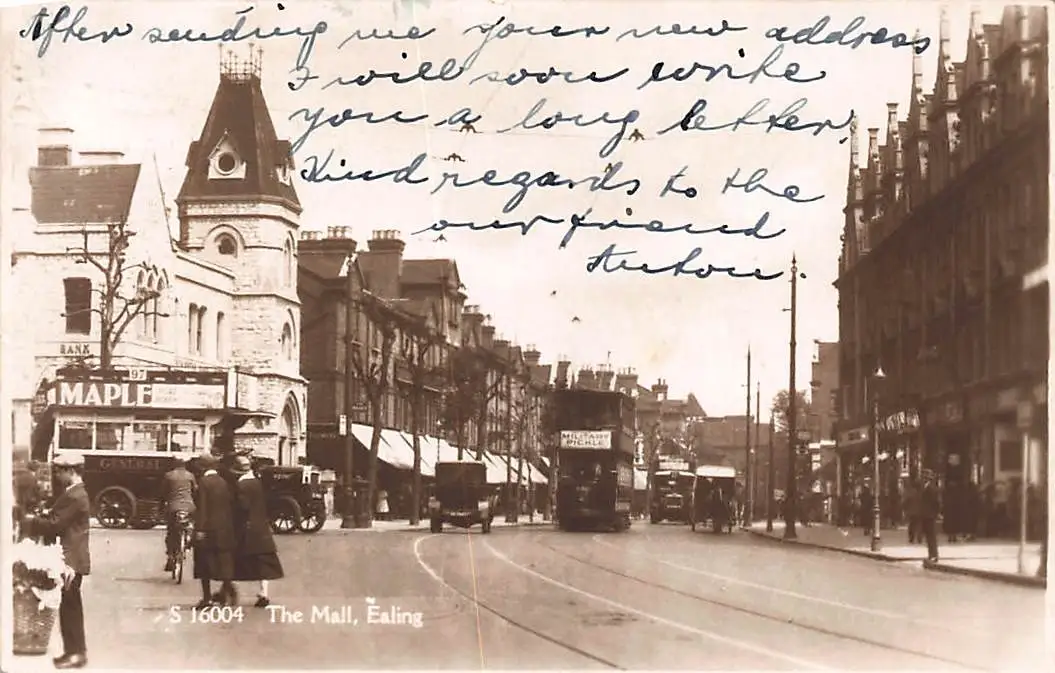 After sending me your new address
I will soon write
you a long letter.
Kind regards to the
our friend
Anton.
BANK
97
MAPLE
GENERAL
MILITARY
PICKLE
S 16004 The Mall, Ealing